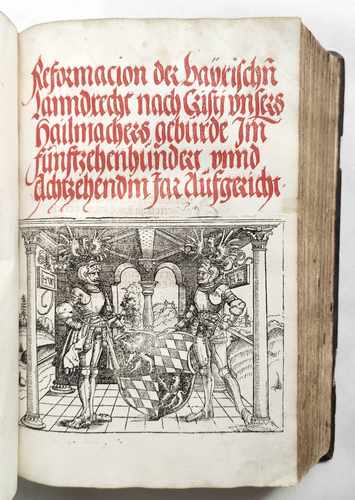 Reformacion der bayrischn
Lanndrecht nach Cristi vnsers
Hailmachers geburde Im
fünftzehenhundert vnnd
Achtzehendm Jar Aufgericht.